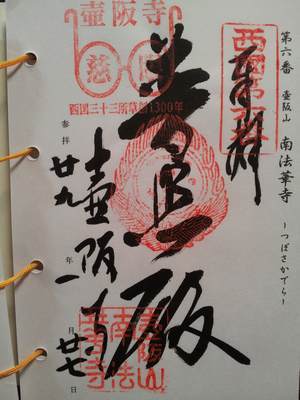 第六番 壷阪山 南法華寺 ～つぼさかでら～
奉拝
西國第六番
普照殿
壷阪寺
慈眼
西国三十三所草創1300年
壷阪寺
参拝 廿九年 一月 廿七日
壷阪山南法華寺